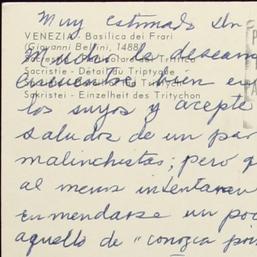 Muy estimado Dn
VENEZIA - Basilica dei Frari
(Giovanni Bellini, 1488)
Mucho de deseam
Sacristie - Détail du Triptyque
encuentre bien en
Sakristei - Einzelheit des Tritychon
los suyos y acepte
saludos de un par
malinchistas; pero q
al menos intentaron
enmendarse un poc
aquello de "conozca pri